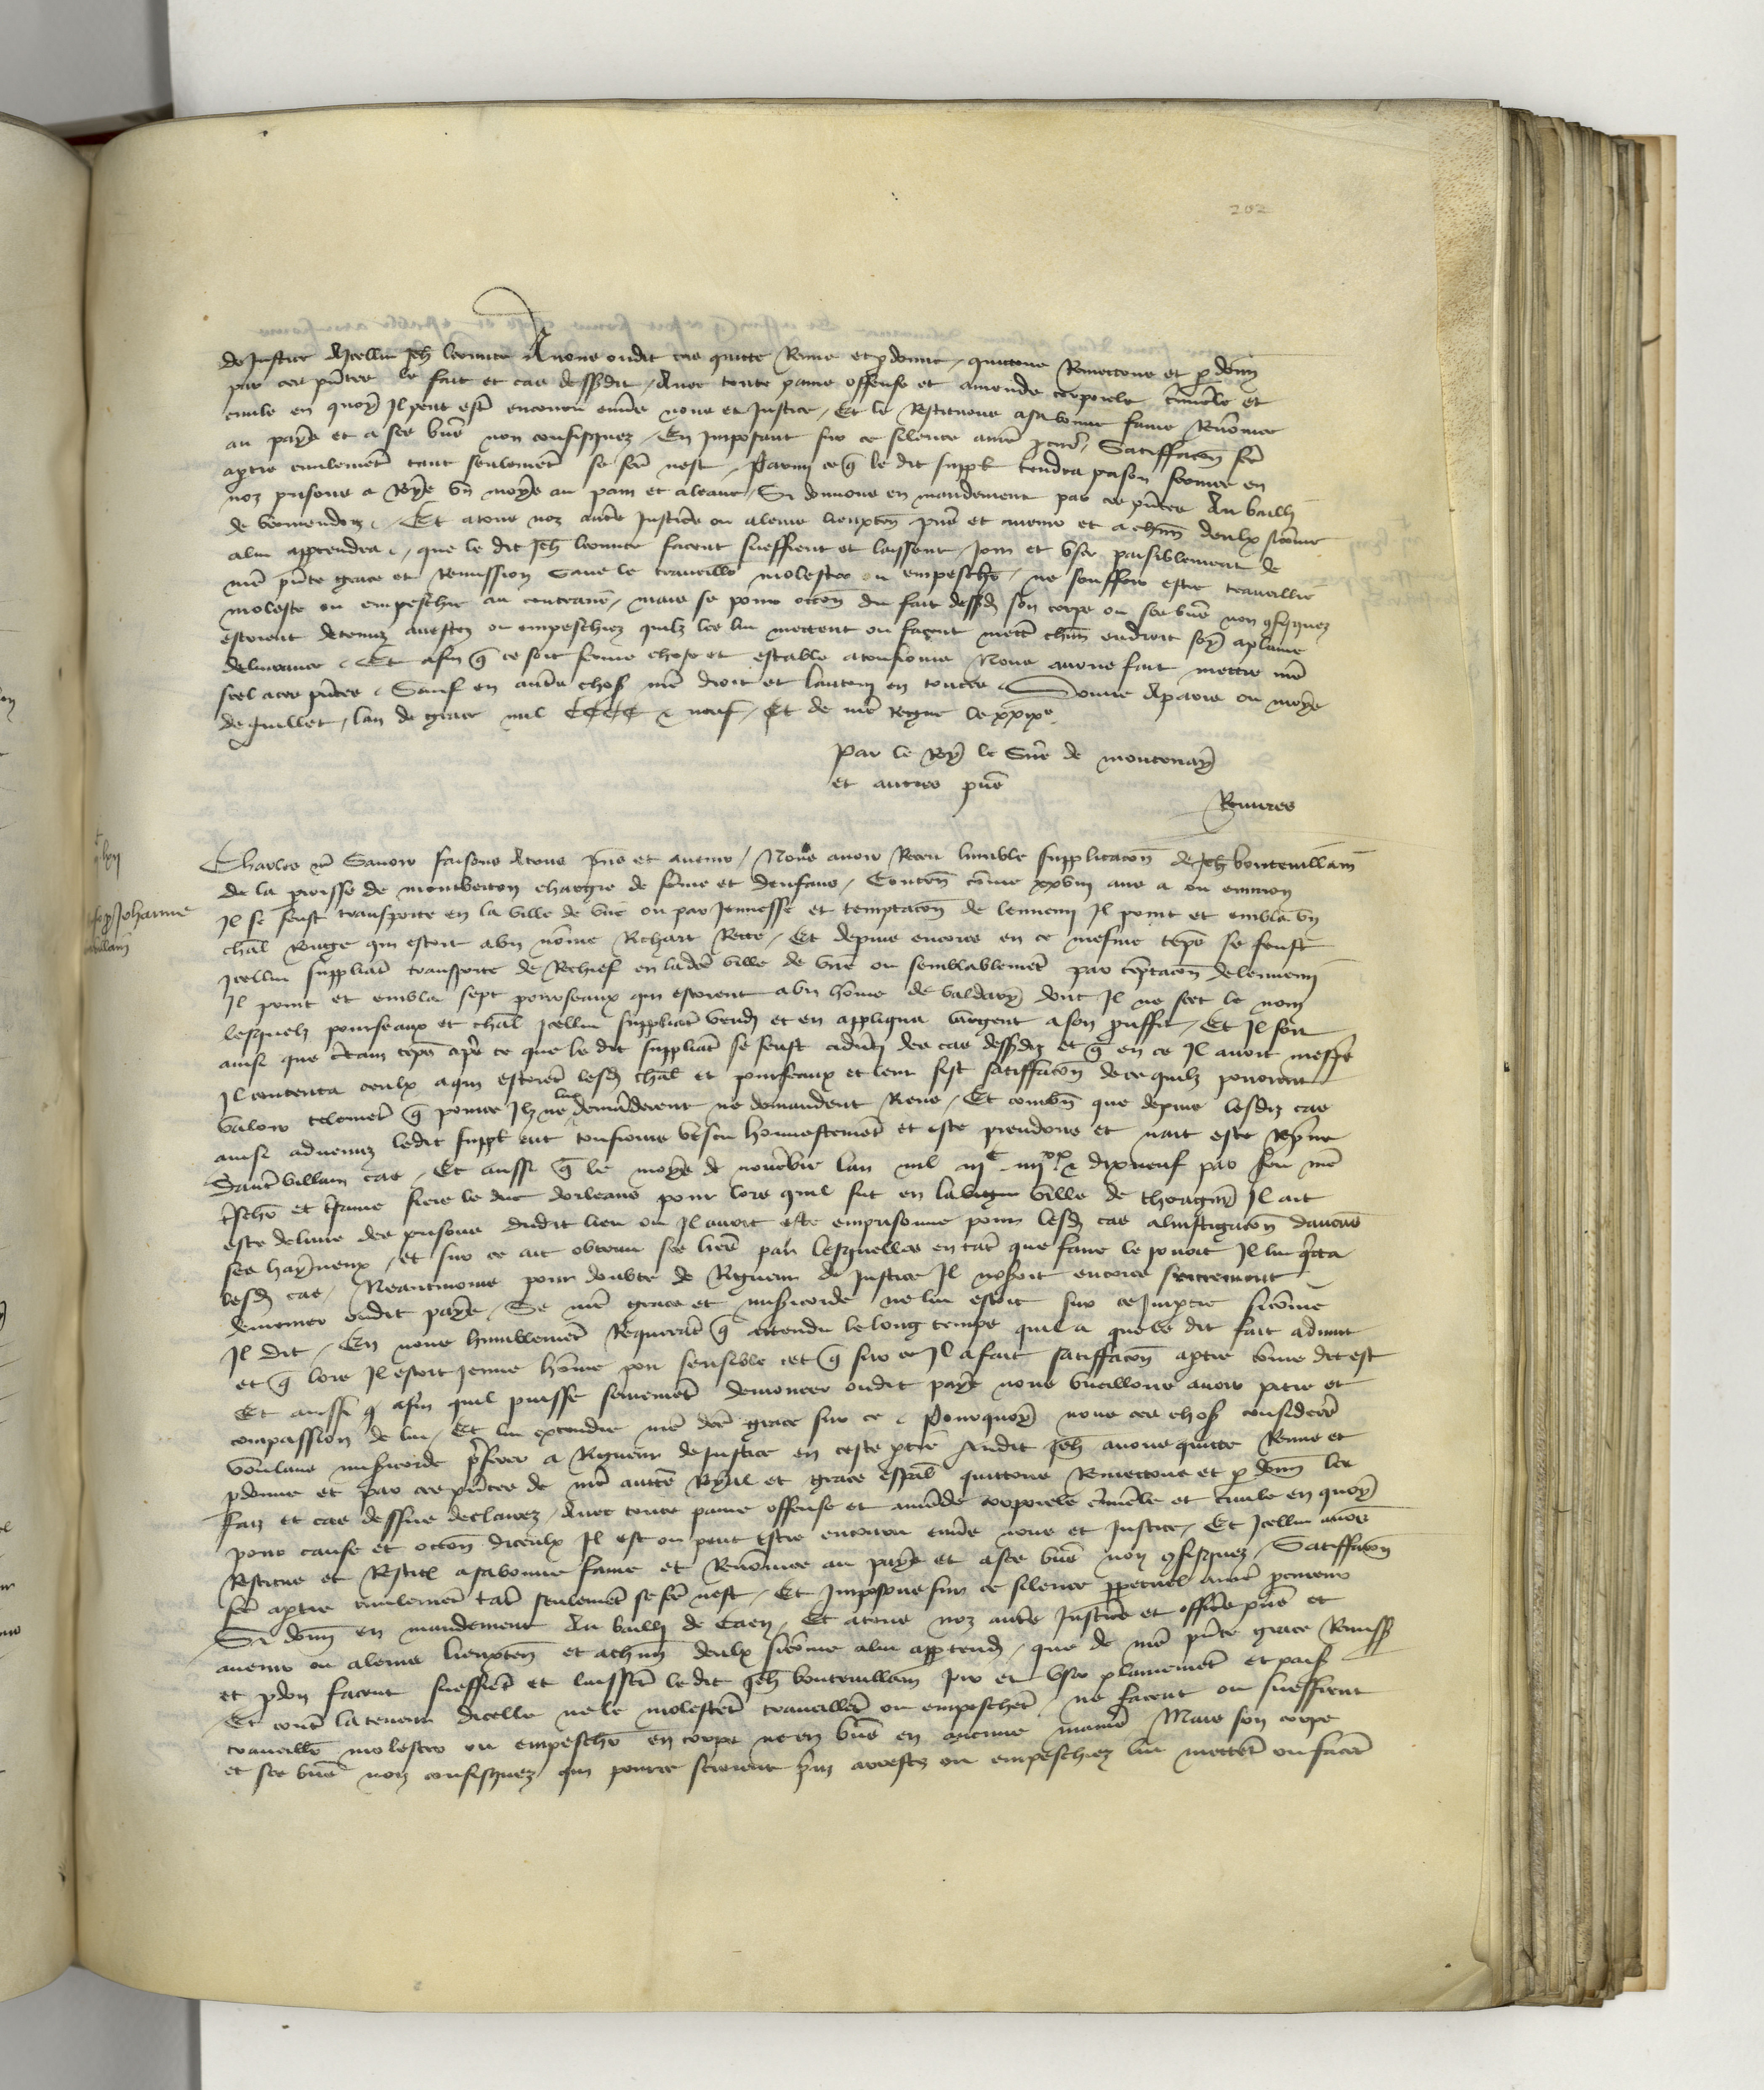 202
de justice A icellui Jeh leonnier Avons oudit cas quitte Remis et pdonne / quictons Remectons et pdonn
par ces pñtes le fait et cas dessusdit / Avec toute paine offense et amende corporele cñmele et
civile en quoy Il peut estr encouru envs nous et Justice / Et le Restituons a sa bonne fame Renõmee
au pays et a ses biẽs non confisquez / En imposant sur ce silence a nr̃e pcur / Satiffacõn fcẽ
a ptie civilemẽt tant seulemẽt se fcẽ nest / Parmi ce q̃ le dit suppl tendra prison fermee en
noz prisons a Roye un moys au pain et a leaue / Si donnons en mandement par ces pñtes Au bailli
de Vermendoiz / Et a tous noz autres Justiciers ou a leurs lieuxten p̃ns et avenir et a chũn deulx sicõme
a lui appartendra / que le dit Jeh leonnier facent sueffrent et laissent / joir et user paisiblement de
nr̃e pñte grace et Remission Sans le travaillr molester ou empeschr / ne souffrir estre travaillie
moleste ou empeschie au contraire / mais se pour occõn du fait dessusd son corps ou ses biẽs non 9fisquez
estoient detenuz arrestez ou empeschiez quilz les lui mettent ou facent mettr chũn endroit soy a plaine
delivrance / Et afin q̃ ce soit ferme chose et estable a tousjours Nous avons fait mettre nr̃e
scel a ces pñtes / Sauf en autres choses nr̃e droit et lautruy en toutes / Donne A paris ou moys
de Juillet / lan de grace mil CCCC & neuf / Et de nr̃e Regne le xxixe
Par le Roy le Sire de montenay
et autres p̃ns
Charles &c Savoir faisons A tous p̃ns et avenir / Nous avoir Receu lumble supplicacõn de Jeh boutevillain
de la parroisse de chargie de fẽme et denfans / Conten cõme xxviii ans a ou environ
Il se feust transporte en la ville de vire ou par jennesse et temptacõn de lennemi Il print et embla un
chal Rouge qui estoit a un nõme Richart / Et depuis encores en ce mesme tẽps se feust
icellui suppliãt transporte de Rechief en ladcẽ ville de vire ou semblablemẽt par tẽptacõn de lennemi
Il print et embla sept pourseaux qui estoient a un hõme de valdary dont Il ne scet le nom
lesquelz pourseaux et chal icellui suppliãt vendi et en appliqua largent a son prffit / Et Il soit
ainsi que ctain tẽps apres ce que le dit suppliãt se feust des cas dessusdiz et q̃ en ce Il avoit mespris
Il contenta ceulx a qui estoiẽt lesd chal et pourseaux et leur fist satiffacõn de ce quilz povoient
valoir telemẽt q̃ pource Ilz ne lui demãderent ne demandent Riens / Et combñ que depuis lesdiz cas
ainsi advenuz ledit suppl ait tousjours vescu honnestemẽt et este preudoms et nait este Repris
daut villain cas / Et aussi q̃ le moys de novẽbre lan mil iijc iiijxx & dixneuf par feu nr̃e
trescher et trsame frere le duc dorleans pour lors quil fut en la ville de Il ait
este delivre des prisons dudit lieu ou Il avoit este emprisonne pour lesd cas a linstigacõn daucũs
ses hayneux / et sur ce ait obtenu ses lrẽs par lesquelles en tãt que faire le povoit Il lui q̃cta
lesd cas / Neantmoins pour doubte de Rigueur de Justice Il noseroit encores seurement
demourer oudit pays / Se nr̃e grace et misericorde ne lui estoit sur ce Impartie sicõme
Il dit / En nous humblemẽt Requerãt q̃ attendu le long temps quil a que le dit fait advint
et q̃ lors Il estoit jenne hõme pou sensible et q̃ sur ce Il a fait satiffacõn a ptie cõme dit est
Et aussi q̃ afin quil puisse seurement demourer oudit pays nous vueillons avoir pitie et
compassion de lui / Et lui extendre nr̃e dcẽ grace sur ce / Pourquoy nous ces choses considerẽes
voulans misericorde p̃ferer a Rigueur de Justice en ceste ptie Audit Jeh avons quitte Remis et
pdonne et par ces pñtes de nr̃e auctẽ Royal et grace esp̃al quittons Remettons et pdonn les
faiz et cas dessus declairez / Avec toute paine offense et amẽde corporele cr̃imẽle et civile en quoy
pour cause et occõn diceulx Il est ou peut estre encouru envs nous et Justice / Et icellui avõs
Restitue et Restitl a sa bonne fame et Renõmee au pays et a ses biẽs non 9fisquez / Satiffacõn
fcẽ a ptie civilemẽt tãt seulemẽt se fcẽ nest / Et Imposons sur ce silence ppetuel a nr̃e pcureur
Si donn en mandement Au bailli de Caen / Et a tous noz autres Justiciers et officiers p̃ns et
avenir ou a leurs lieuxten et a chũn deulx sicõme a lui apptendra / que de nr̃e pñte grace Remiss
et pdon facent sueffrẽt et laissẽt ledit Jeh boutevillain joir et user plainemẽt et pais
Et contre la teneur dicelle ne le molestẽt travaillẽt ou empeschẽt ne facent ou sueffrent
travaillr molester ou empeschr en corps ne en biẽs en aucune maniẽ Mais son corps
et ses biẽs non confisquez qui pource seroient pris arrestez ou empeschiez lui mettẽt ou facẽt